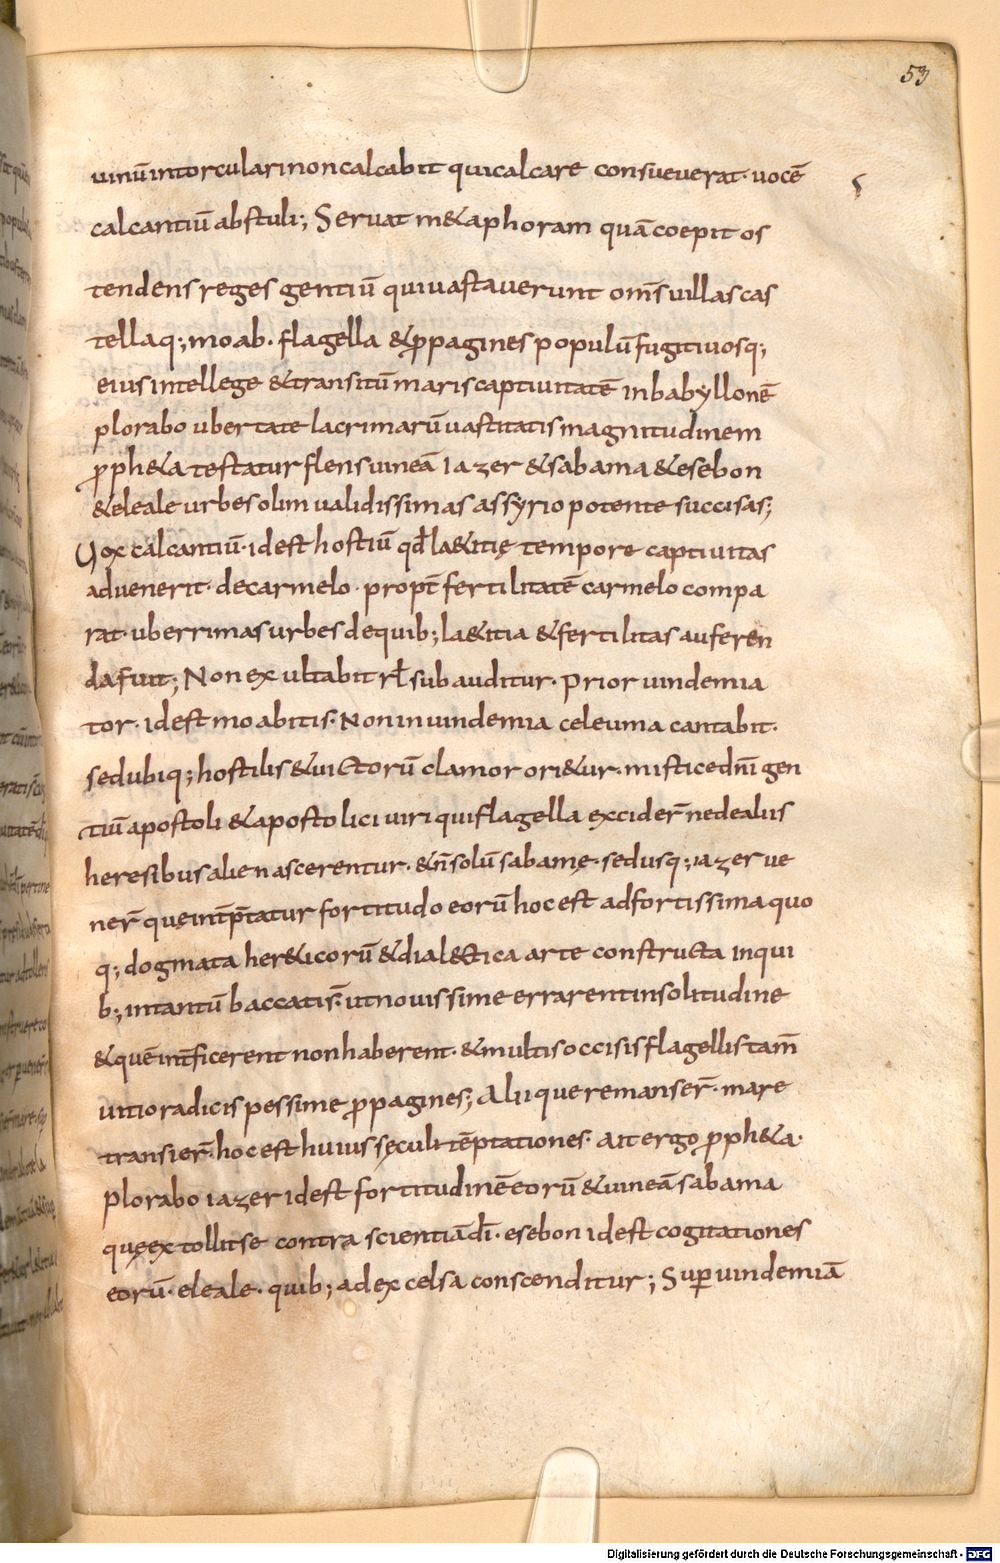 53
uinū intorculari non calcabit qui calcare consueuerat· uocē
calcantiū abstuli; Seruat m&aphoram quā coepit os
tendens reges gentiū qui uastauerunt om̄s uillas cas
tellaq; moab· flagella & ꝓpagines populū fugitiuosq;
eius intellege & transitū maris captiuitatē in babyllonē
plorabo ubertate lacrimarū uastitatis magnitudinem
ꝓph&a testatur flens uineā iazer & sabama & esebon
& eleale urbes olim ualidissimas assyrio potente succisas;
Uox calcantiū· id est hostiū qđ la&itię tempore captiuitas
aduenerit· de carmelo· propt̄ fertilitatē carmelo compa
rat· uberrimas urbes de quib; la&itia & fertilitas auferen
da fuit; Non exultabit rł subauditur· Prior uindemia
tor· id est moabitis· Non in uindemia celeuma cantabit·
sed ubiq; hostilis & uictorū clamor ori&ur· mistice dn̄i gen
tiū apostoli & apostolici uiri qui flagella excider̄ ne de aliis
heresibus alie nascerentur· & n̄ solū sabamę· sed usq; iazer ue
ner̄ quę int̄p̄tatur fortitudo eorū hoc est ad fortissima quo
q; dogmata her&icorū & dial&ica arte constructa in qui
b; in tantū baccati s̄· ut nouissime errarent in solitudine
& quē int̄ficerent non haberent· & multis occisis flagellis tam̄
uitio radicis pessime ꝓpagines; Alii que remanser̄· mare
transier̄· hoc est huius sęculi tēptationes· ait ergo ꝓph&a·
Plorabo iazer id est fortitudinē eorū & uineā sabama
quę extollit se contra scientiā dī· esebon id est cogitationes
eorū· eleale· quib; ad excelsa conscenditur; Suꝑ uindemiā
Digitalisierung gefördert durch die Deutsche Forschungsgemeinschaft - DFG